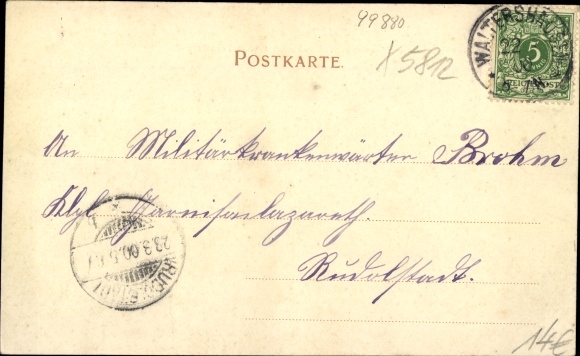 99880
POSTKARTE.
X5812
WALTERSHAUSEN
22
5
REICHSPOST
An Militärkrankenwärter Brohm
Kgl. Garnisonlazareth.
Rudolstadt.
RUDOLSTADT
23.3.00.5-6.V
14€